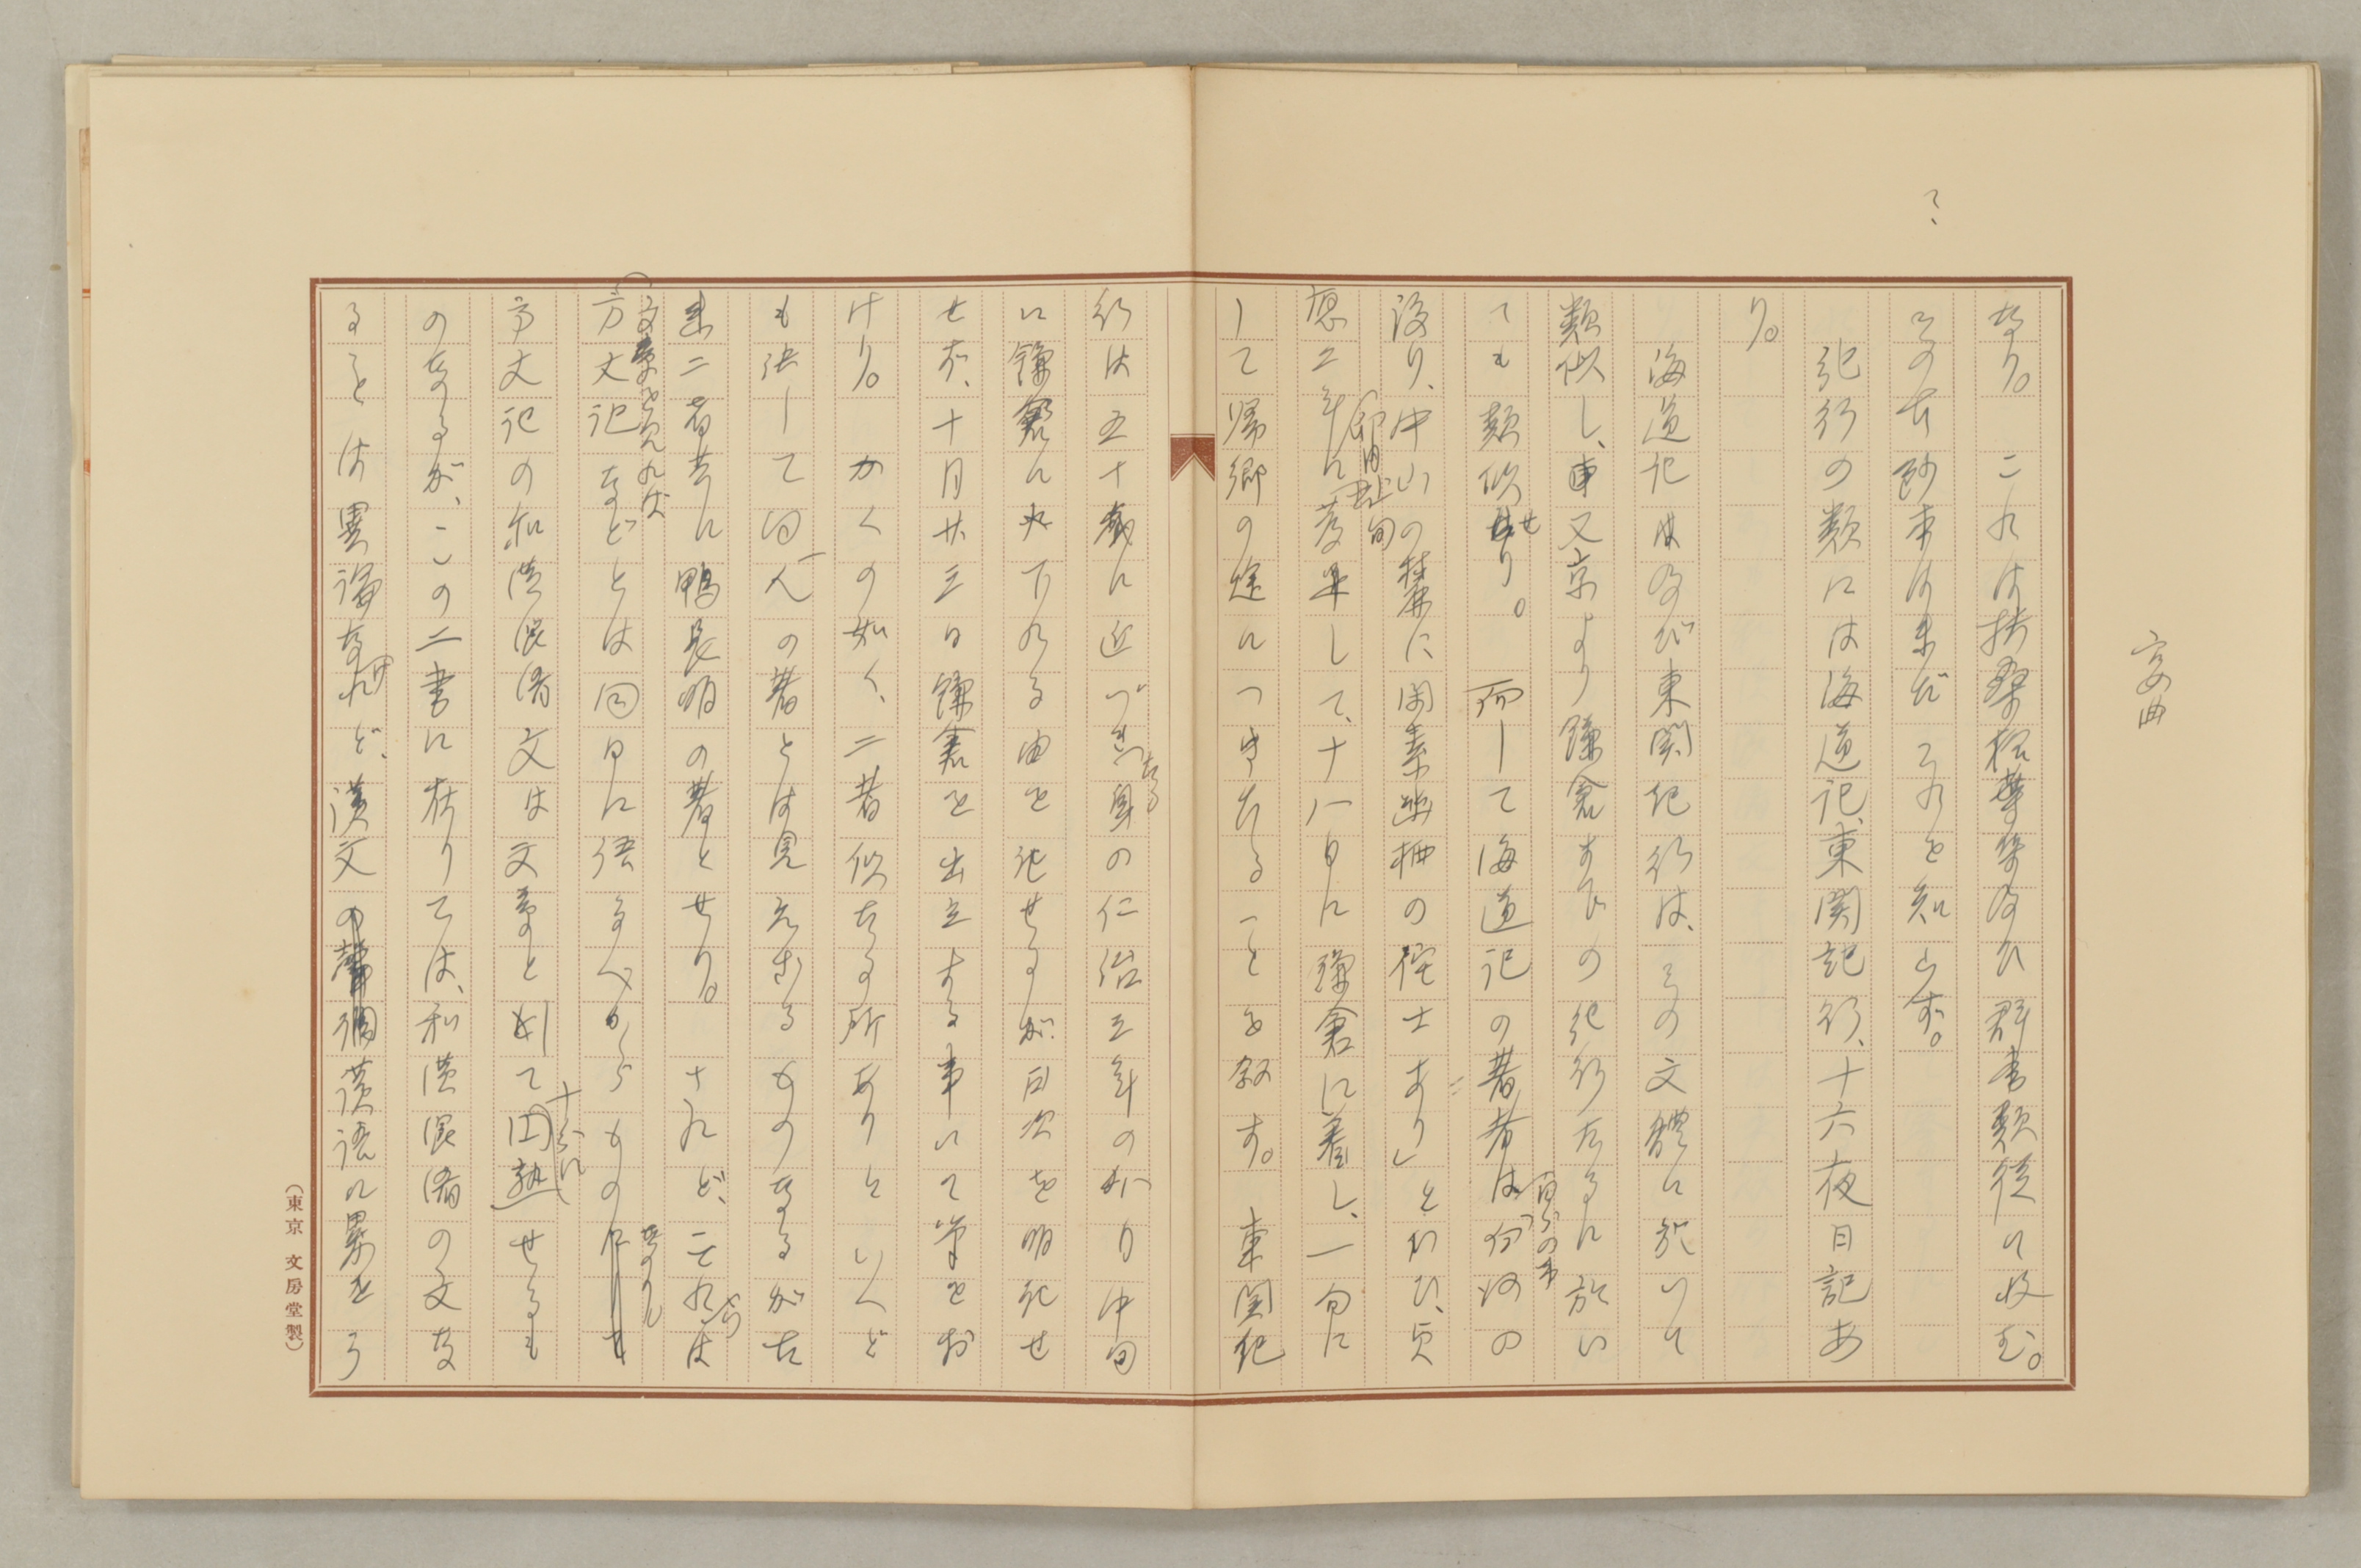 宴曲
なり。これは扶桑拾葉集及ひ群書類従に收む。
その古鈔本は未だこれを知らず。
紀行の類には海道記、東関紀行、十六夜日記あ
り。
海道記及び東関紀行は、その文體に於いて
類似し、東又京より鎌倉までの紀行たるに於い
ても類似せり。而して海道記の著者は白河の
渡り、中山の麓に閑素幽栖の侘士あり」といひ、貞
應二年に発足して、十八日に鎌倉に着し、一旬に
卯月上旬
して帰郷の途につきたることを叙す。東関紀
行は五十歳に近づきたる男の仁治三年の八月中旬
に鎌倉に下れる由を記せるが、日次を明記せ
ず、十月廿三日鎌倉を出立する事にて筆をお
けり。かくの如く、二者似たる所ありといへど
も決して同一人の著とは見えざるものなるが古
来二者共に鴨長明の著とせり。されど、これらは
文章を見れば
方丈記などとは同日に語るべからざるものなり。
方丈記の和漢混淆文は文章として円熟せるも
十分に
のなるが、この二書に在りては、和漢混淆の文な
ることは異論なけれど、漢文調漢語に累せら
（東京 文房堂製）